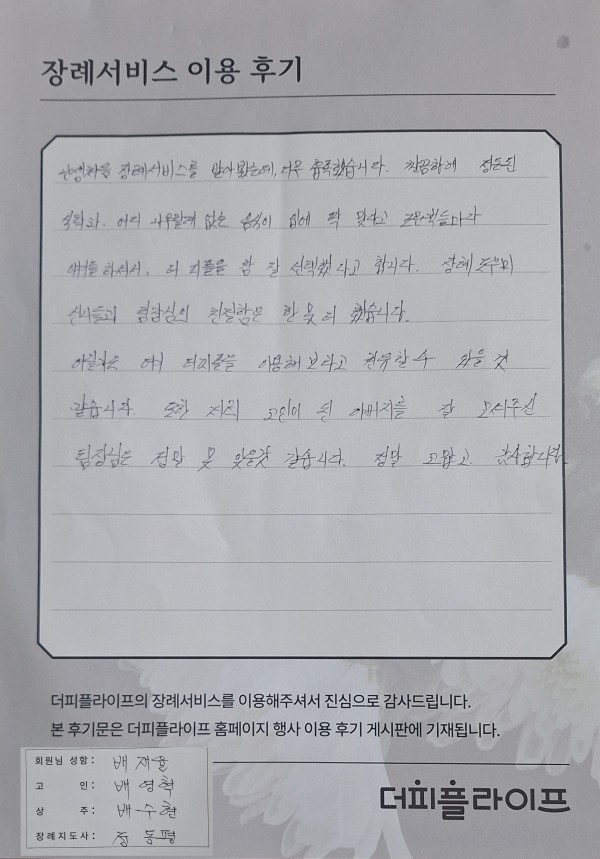 장례서비스 이용 후기
장례서비스를 받아봤는데, 너무 흡족했습니다. 깔끔하게 정돈된
어디 나무랄데 없는 음식이 입에 딱 맞았고
더피플을 참 잘 선택했다고 합니다. 장례도우미
팀장님의 친절함은 한 몫 더 했습니다.
여러 더피플을 이용해 보라고 권유할 수 있을 것
같습니다. 또한 저희 고인이 된 아버지를 잘 모셔주신
팀장님은 정말 못 잊을것 같습니다. 정말 고맙고. 감사합니다.
더피플라이프의 장례서비스를 이용해주셔서 진심으로 감사드립니다.
본 후기문은 더피플라이프 홈페이지 행사 이용 후기 게시판에 기재됩니다.
회원님 성함 : 배재율
고 인 : 배영학
상 주 : 배수현
장례지도사 : 정동평
더피플라이프